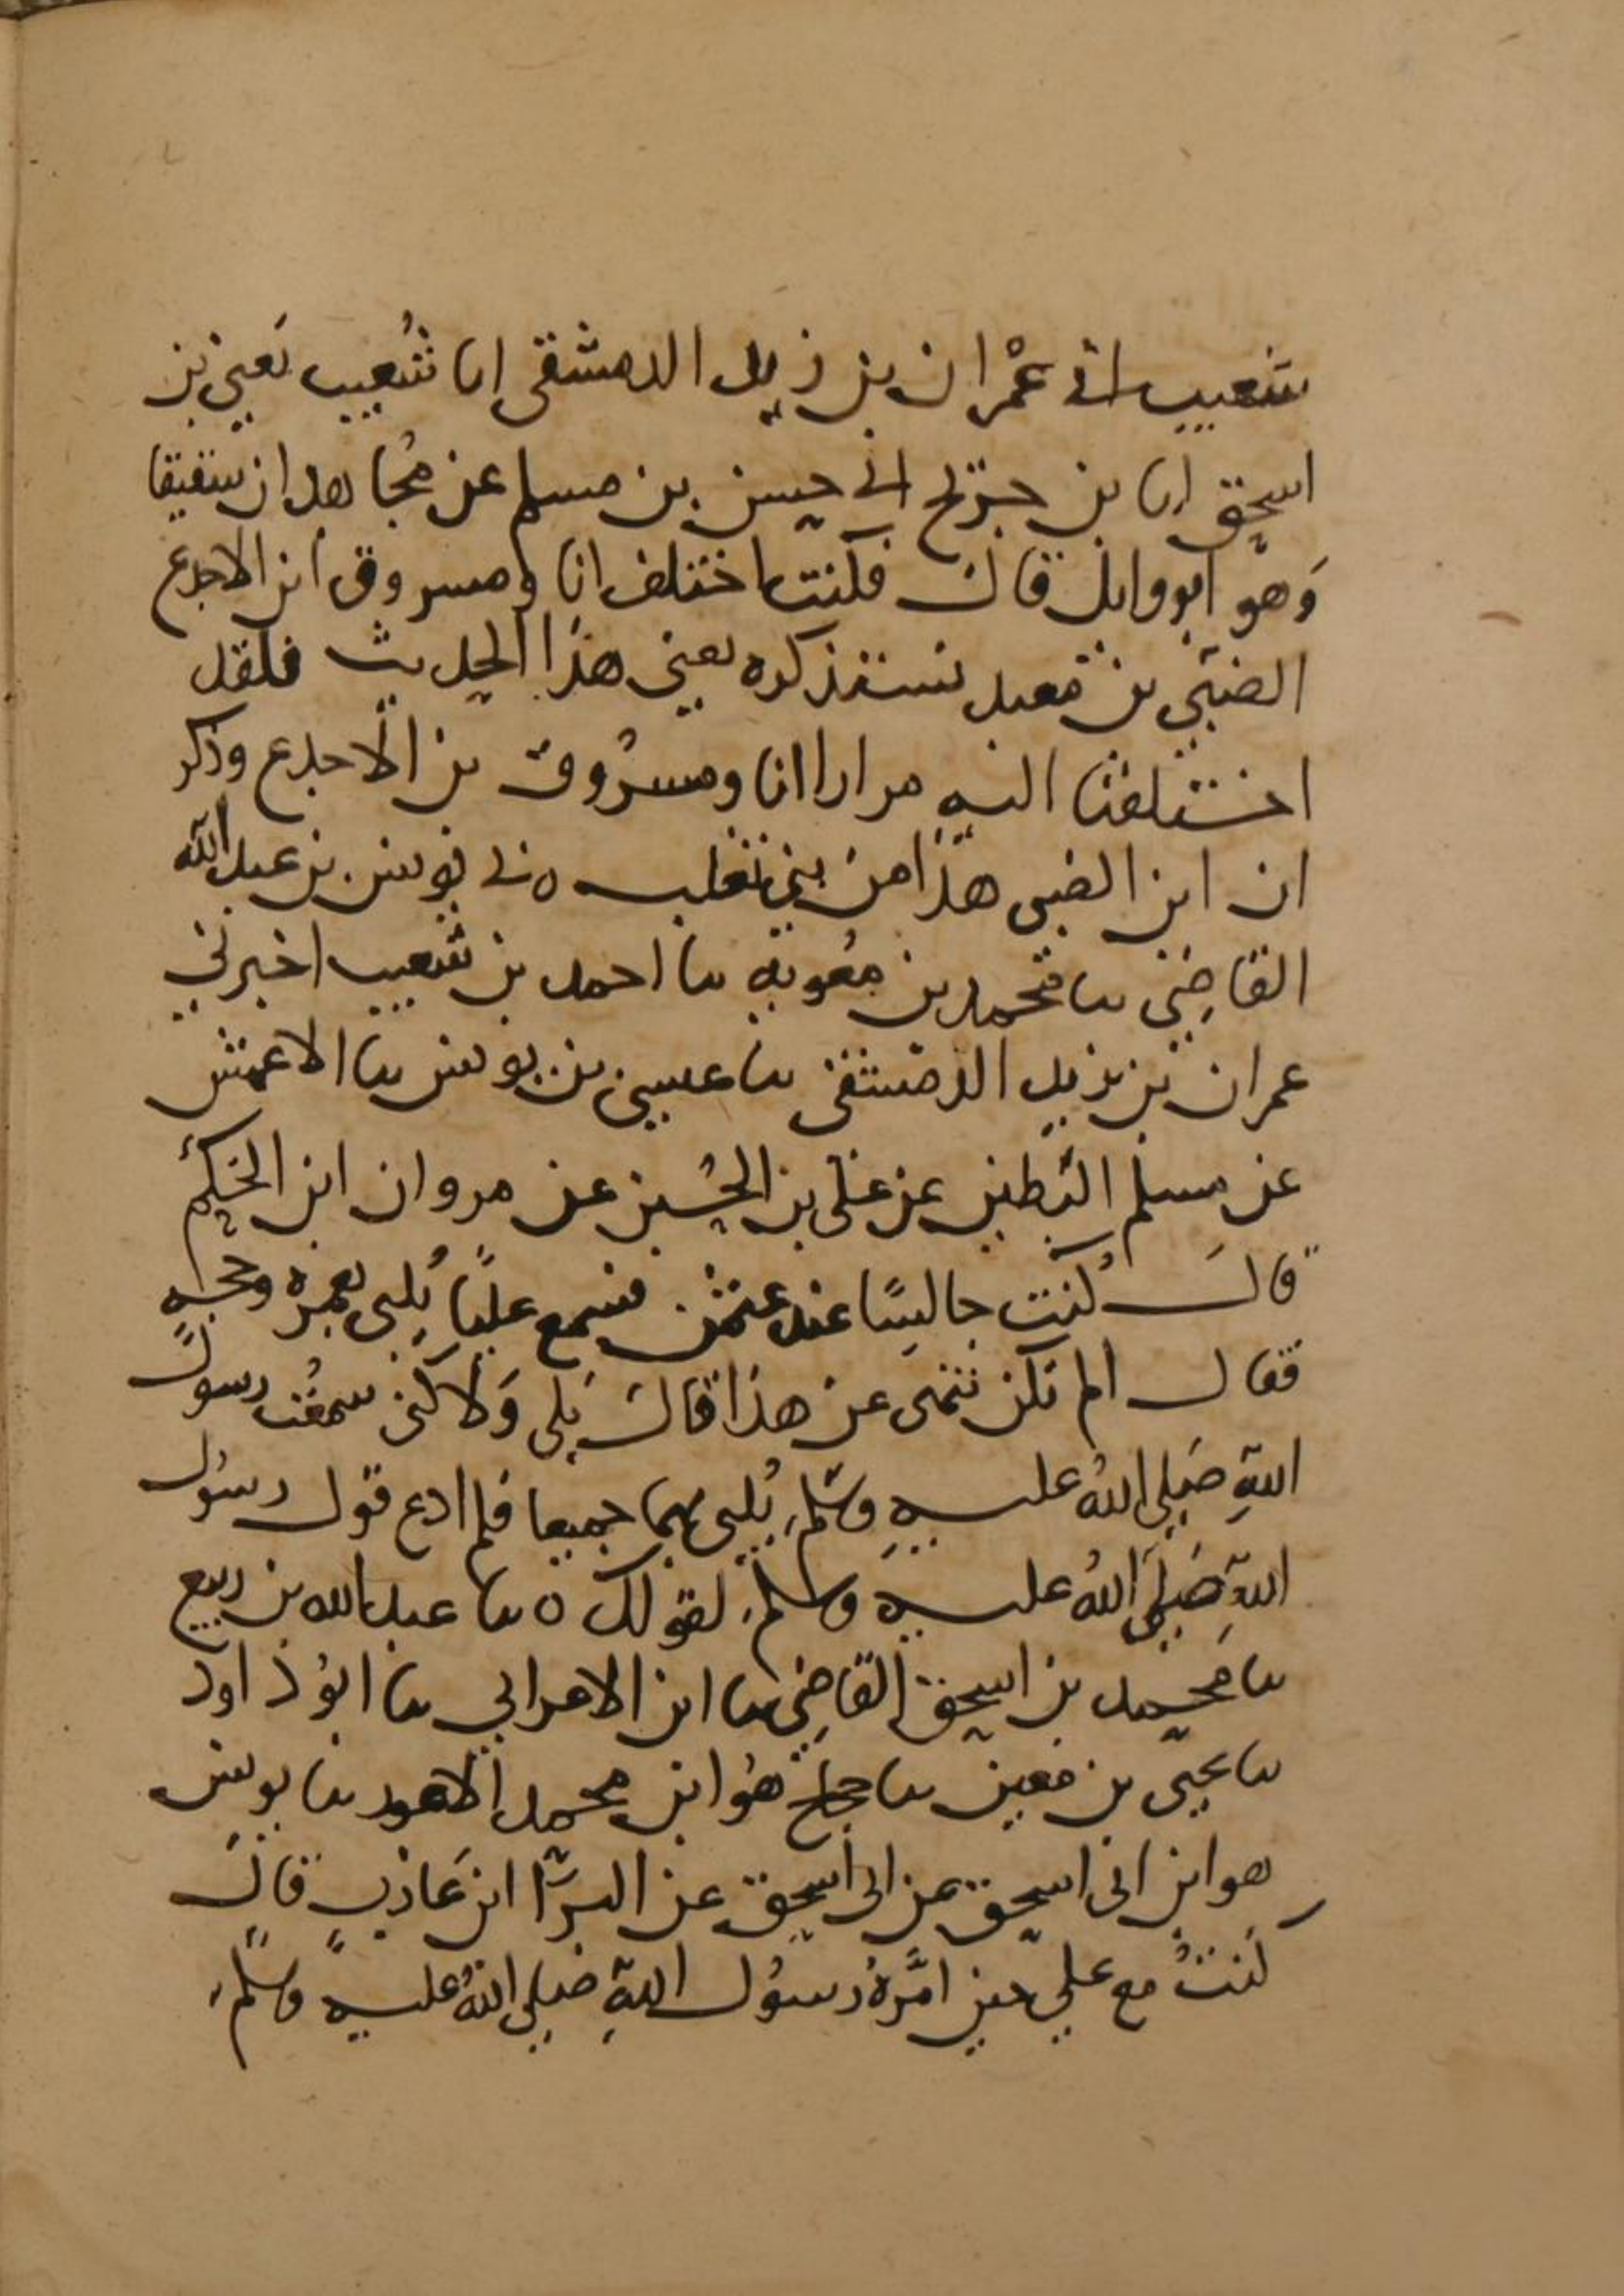 شعيب اني عمران بن زيد الدمشقي انا شعيب يعني بن
اسحق انا بن جريج اني حسن بن مسلم عن مجاهد ان شقيقا
وهو ابو وايل قال فكنت اختلف انا ومسروق ابن الاجدع
الضبي بن معبد نستذكره يعني هذا الحديث فلقد
اختلفنا اليه مرارا انا ومسروق بن الاجدع وذكر
ان ابن الضبي هذا من بني تغلب ٥ ني يونس بن عبد الله
القاضي نا محمد بن معوية نا احمد بن شعيب اخبرني
عمران بن يزيد الدمشقي نا عيسى بن يونس نا الاعمش
عن مسلم البطين عن علي بن الحسين عن مروان ابن الحكم
قال كنت جالسًا عند عثمن فسمع عليًا يلبي بعمرة وحجةٍ
فقال الم تكن تنهى عن هذا قال بلى ولاكني سمعت رسول
اللهِ صلى اللهُ عليه وسلم يُلبي بهما جميعا فلم ادع قول رسول
اللهِ صلى اللهُ عليه وسلم لقولك ٥ نا عبد الله بن ربيع
نا محمد بن اسحق القاضي نا ابن الاعرابي نا ابو داود
نا يحيى بن معين نا حجاج هو ابن محمد الاعور نا يونس
هو ابن ابي اسحق عن ابي اسحق عن البرّا ابن عازب قال
كنتُ مع علي حين امَّرهُ رسول اللهِ صلى اللهُ عليه وسلم